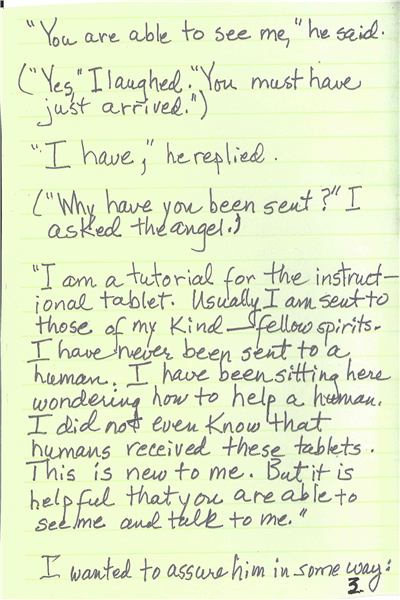 "You are able to see me," he said.
("Yes," I laughed. "You must have
just arrived.")
"I have," he replied.
("Why have you been sent?" I
asked the angel.)
"I am a tutorial for the instruct-
ional tablet. Usually I am sent to
those of my kind—fellow spirits.
I have never been sent to a
human. I have been sitting here
wondering how to help a human.
I did not even know that
humans received these tablets.
This is new to me. But it is
helpful that you are able to
see me and talk to me."
I wanted to assure him in some way:
3